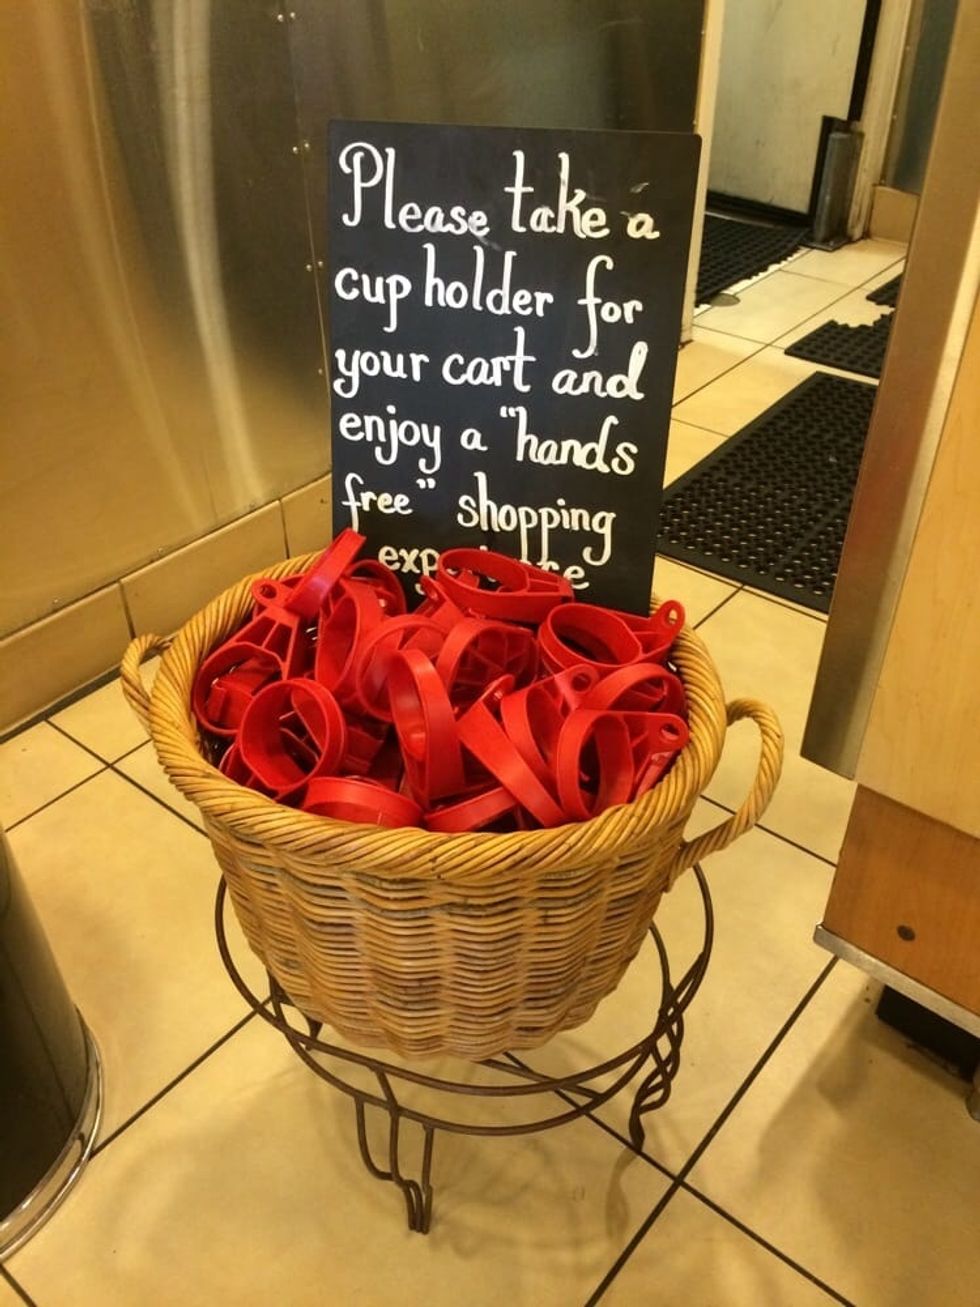 Please take a
cup holder for
your cart and
enjoy a "hands
free" shopping